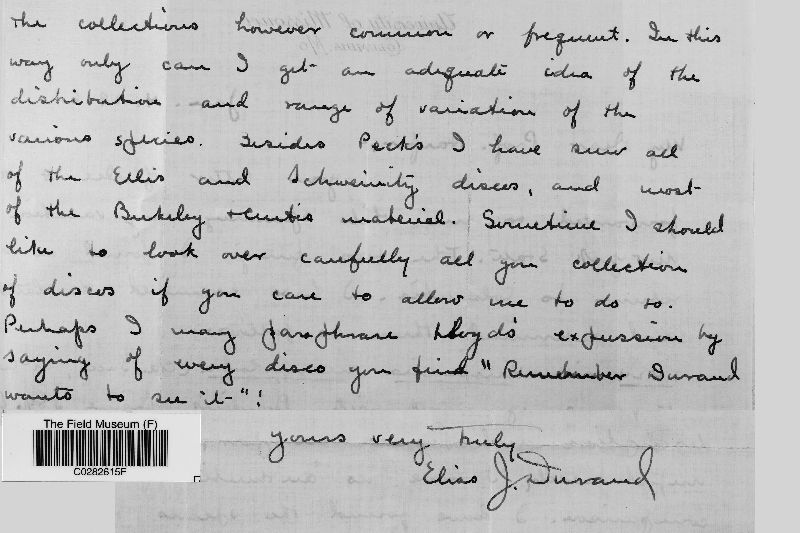 the collections however common or frequent. In this
way only can I get an adequate idea of the
distribution and range of variation of the
various species. Besides Peck's I have seen all
of the Ellis and Schweinitz discos, and most
of the Berkeley + Curtis material. Sometime I should
like to look over carefully all you collection
of discos if you care to allow me to do so.
Perhaps I many paraphrase Lloyd's expression by
saying of every disco you find "Remember Durand
wants to see it"!
Yours very truly
Elias J. Durand
The Field Museum (F)
C0282615F
University of Missouri